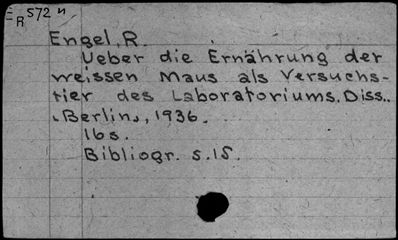 E
R 572 n
Engel, R.
Ueber die Ernährung der
weissen Maus als Versuchs-
tier des Laboratoriums. Diss..
‹Berlin›, 1936.
16 s.
Bibliogr. s. 15.